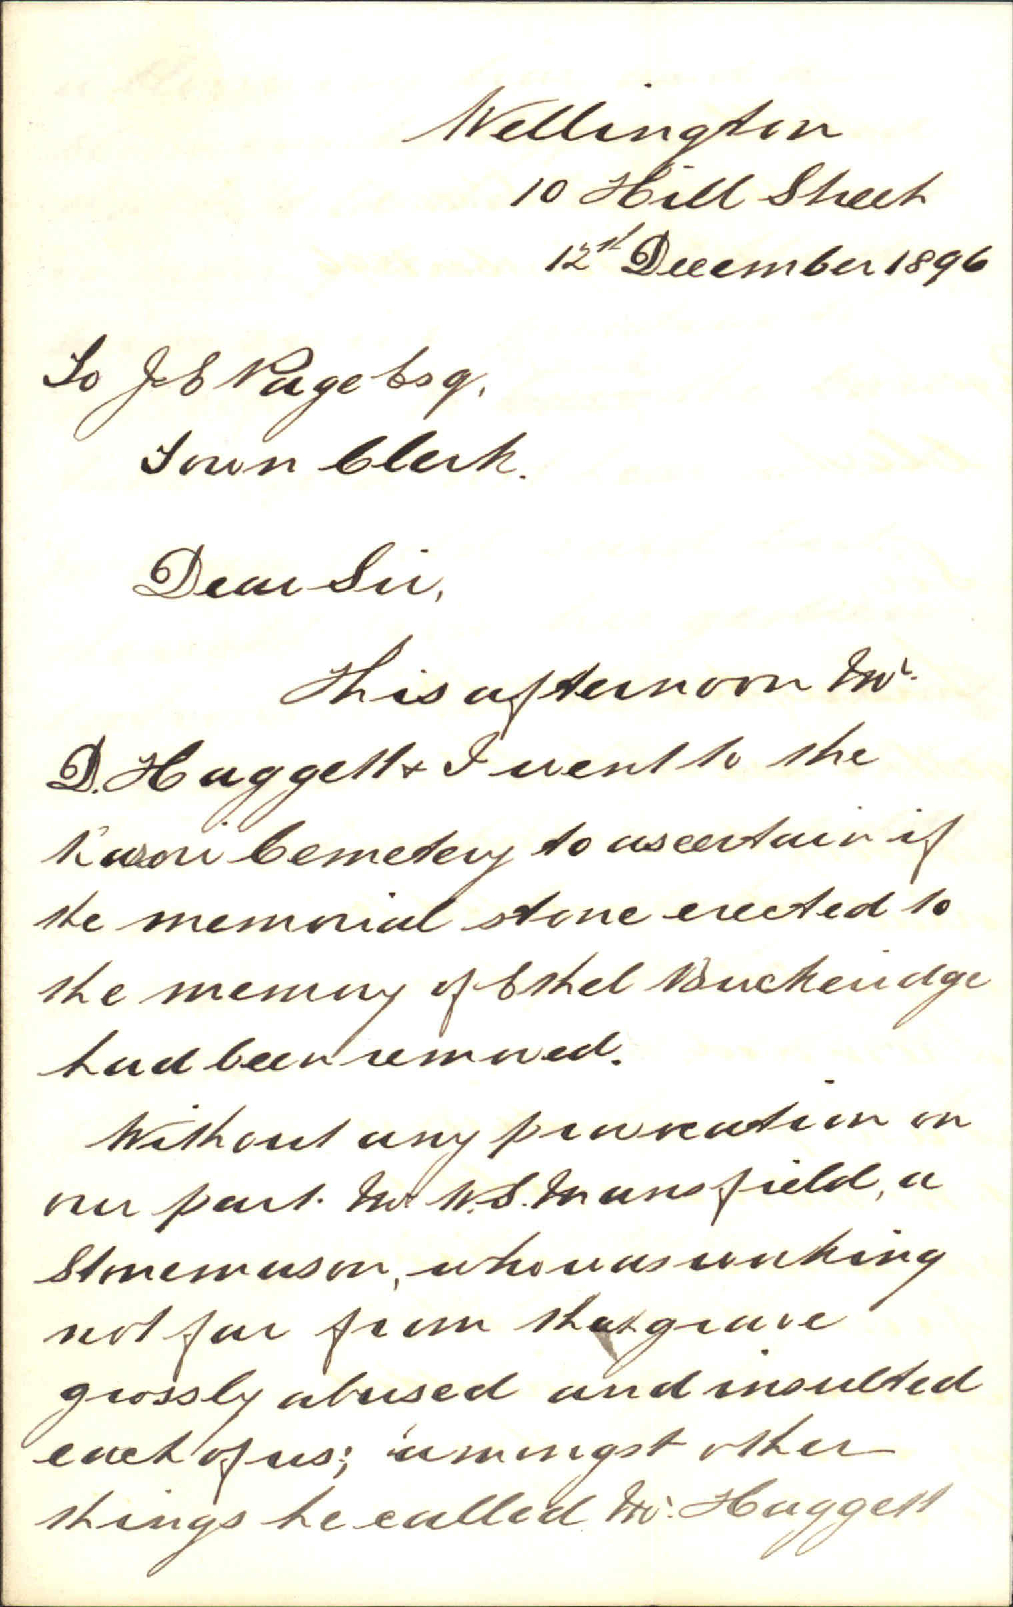 Wellington
10 Hill Street
12st December 1896
To J E Page Esq.
Town Clerk.
Dear Sir,
This afternoon Mr.
D. Haggett & I went to the
Karori Cemetery to ascertain if
the memorial stone erected to
the memory of Ethel Buckeridge
had been removed.
Without any provocation on
our part. Mr W.S. Mansfield, a
Stonemason, who was working
not far from that grave
grossly abused and insulted
each of us; amongst other
things he called Mr. Haggett